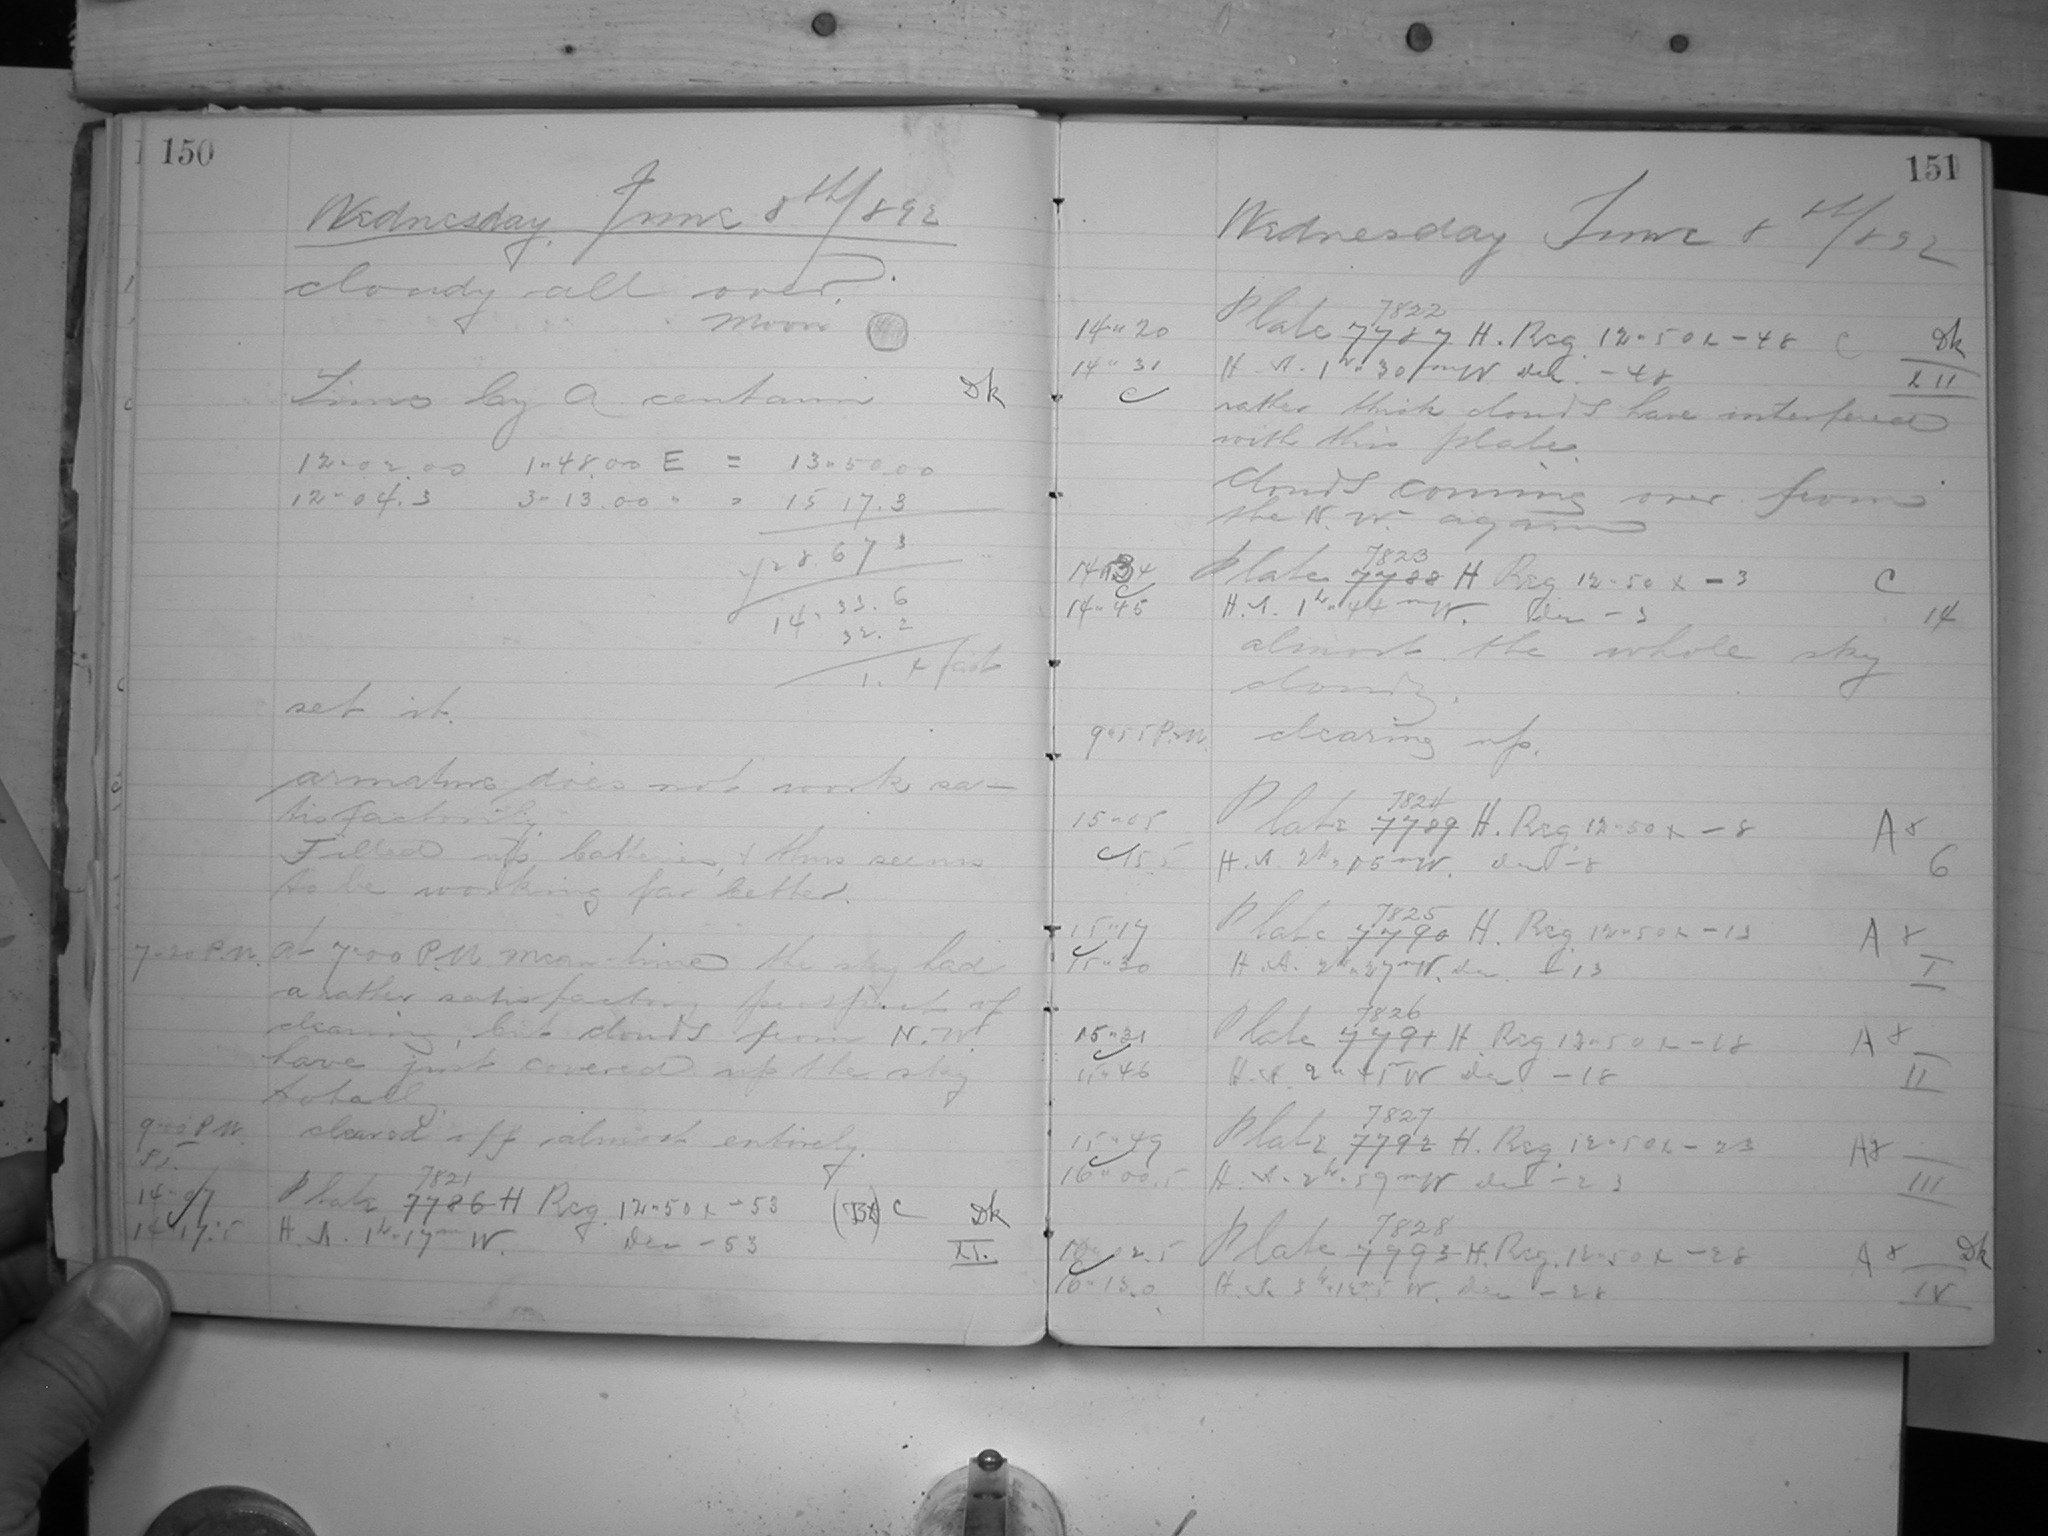 150
Wednesday June 8th/892
cloudy all over.
Moon
Time by α centauri Dk
12"02.00 1"48.00 E = 13"50.00
12"04.3 3"13.00 " = 15 17.3
28.67 3
14"33.6
32.2
1.4 fast
set it.
armature does not work sa-
tisfactorily.
Filled up batteries, & thus seems
to be working far better.
7"20 P.M. At 7"00 P.M. mean time the sky had
a rather satisfactory prospect of
clearing, but clouds from N.W.
have just covered up the sky
totally.
9"00 P.M. cleared off almost entirely.
ST.
7821
14"07 Plate 7786 H Reg. 12"50 x -53 C Dk
14"17.5 H.A. 1h"17m W. Dec -53 II.
151
Wednesday June 8th/892
7822
14"20 Plate 7787 H. Reg. 12"50 x -48 C Dk
14"31 H.A. 1h"30m W Dec. -48 XII
rather thick clouds have interfered
with this plate.
clouds coming over from
the N.W. again
7823
14"34 Plate 7788 H Reg 12"50 x -3 C
14"45 H.A. 1h"44m W. Dec -3 14
almost the whole sky
cloudy.
9"55 P.M. clearing up.
7824
15"05 Plate 7789 H. Reg. 12"50 x -8 A 8
15.5 H.A. 2h"15m W. Dec -8 6
7825
15"17 Plate 7790 H. Reg. 12"50 x -13 A 8
15"30 H.A. 2h"27m W. Dec -13 I
7826
15"31 Plate 7791 H Reg 12"50 x -18 A 8
15"46 H.A. 2h 45 W Dec -18 II
7827
15"49 Plate 7792 H. Reg. 12"50 x -23 A8
16"00.5 H.A. 2h"59m W Dec -23 III
7828
16"02.5 Plate 7793 H. Reg. 12"50 x -28 A 8 Dk
16"13.0 H.A. 3h"12m.5 W. Dec -28 IV